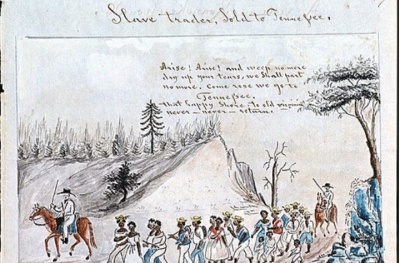 Slave trader, Sold to Tennessee,
Arise! Arise! and weep no more
dry up your tears, we Shall part
no more. Come rose we go to
Tennessee,
that happy Shore. To old virginia
never – never – return.